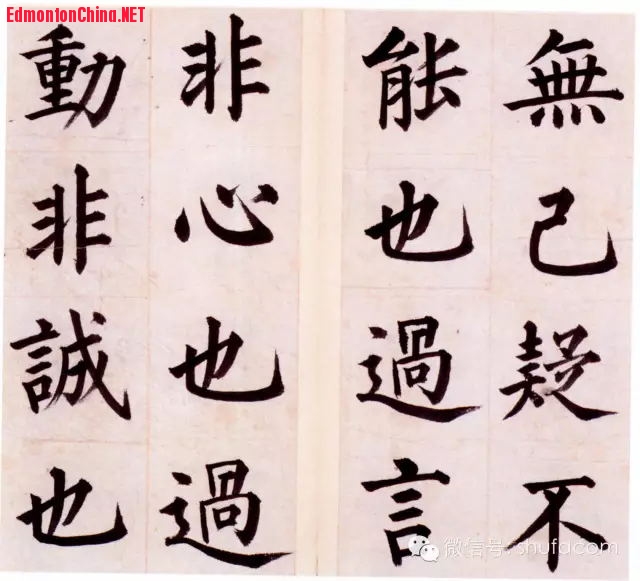 EdmontonChina.NET
無己疑不
能也過言
非心也過
動非誠也
微信号: shufa